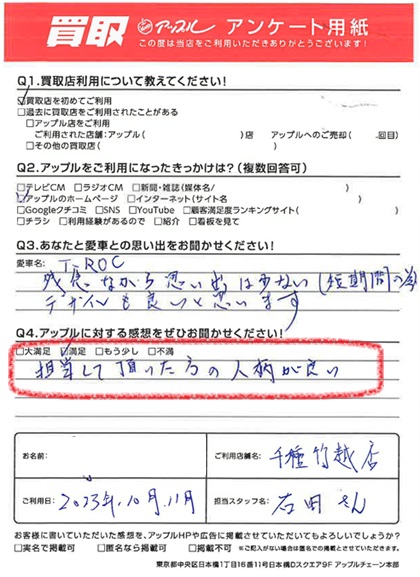 買取 アップル アンケート用紙
この度は当店をご利用いただきありがとうございます!
Q1.買取店利用について教えてください!
☑買取店を初めてご利用
□過去に買取店をご利用されたことがある
□アップル店をご利用
ご利用された店舗:アップル( )店 アップルへのご売却( 回目)
□その他の買取店( )
Q2.アップルをご利用になったきっかけは?(複数回答可)
□テレビCM □ラジオCM □新聞・雑誌(媒体名/ )
☑アップルのホームページ □インターネット(サイト名 )
□Googleクチコミ □SNS □YouTube □顧客満足度ランキングサイト( )
□チラシ □利用経験があるので □紹介 □看板を見て
Q3.あなたと愛車との思い出をお聞かせください!
愛車名: T-ROC
残念ながら思い出は少ない(短期間の為
デザインも良いと思います
Q4.アップルに対する感想をぜひお聞かせください!
□大満足 ☑満足 □もう少し □不満
担当して頂いた方の人柄が良い
お名前: ご利用店舗名: 千種竹越店
ご利用日: 2023年.10月.11月 担当スタッフ名: 石田さん
お客様に書いていただいた感想を、アップルHPや広告に掲載させていただいてもよろしいでしょうか?
□実名で掲載可 □匿名なら掲載可 □掲載不可 ※ご記入がない場合は匿名での掲載とさせていただきます。
東京都中央区日本橋1丁目16番11号日本橋Dスクエア9F アップルチェーン本部